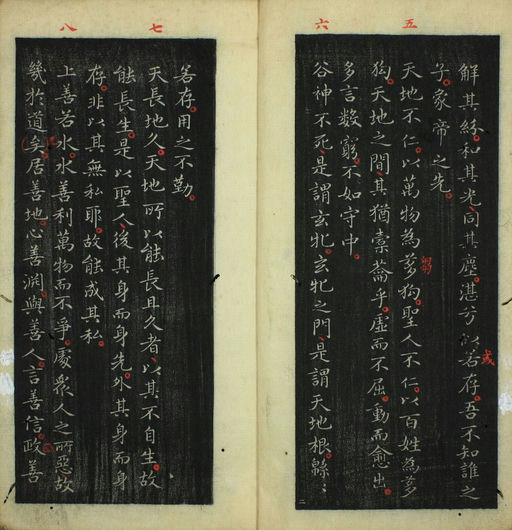 五
六
解其紛和其光同其塵湛兮似若存吾不知誰之
或
子象帝之先
天地不仁以萬物為芻狗聖人不仁以百姓為芻
狗天地之間其猶橐籥乎虛而不屈動而愈出
多言數窮不如守中
谷神不死是謂玄牝玄牝之門是謂天地根緜〻
七
八
若存用之不勤
天長地久天地所以能長且久者以其不自生故
能長生是以聖人後其身而身先外其身而身
存非以其無私耶故能成其私
上善若水水善利萬物而不爭處衆人之所惡故
幾於道矣居善地心善淵與善人言善信政善